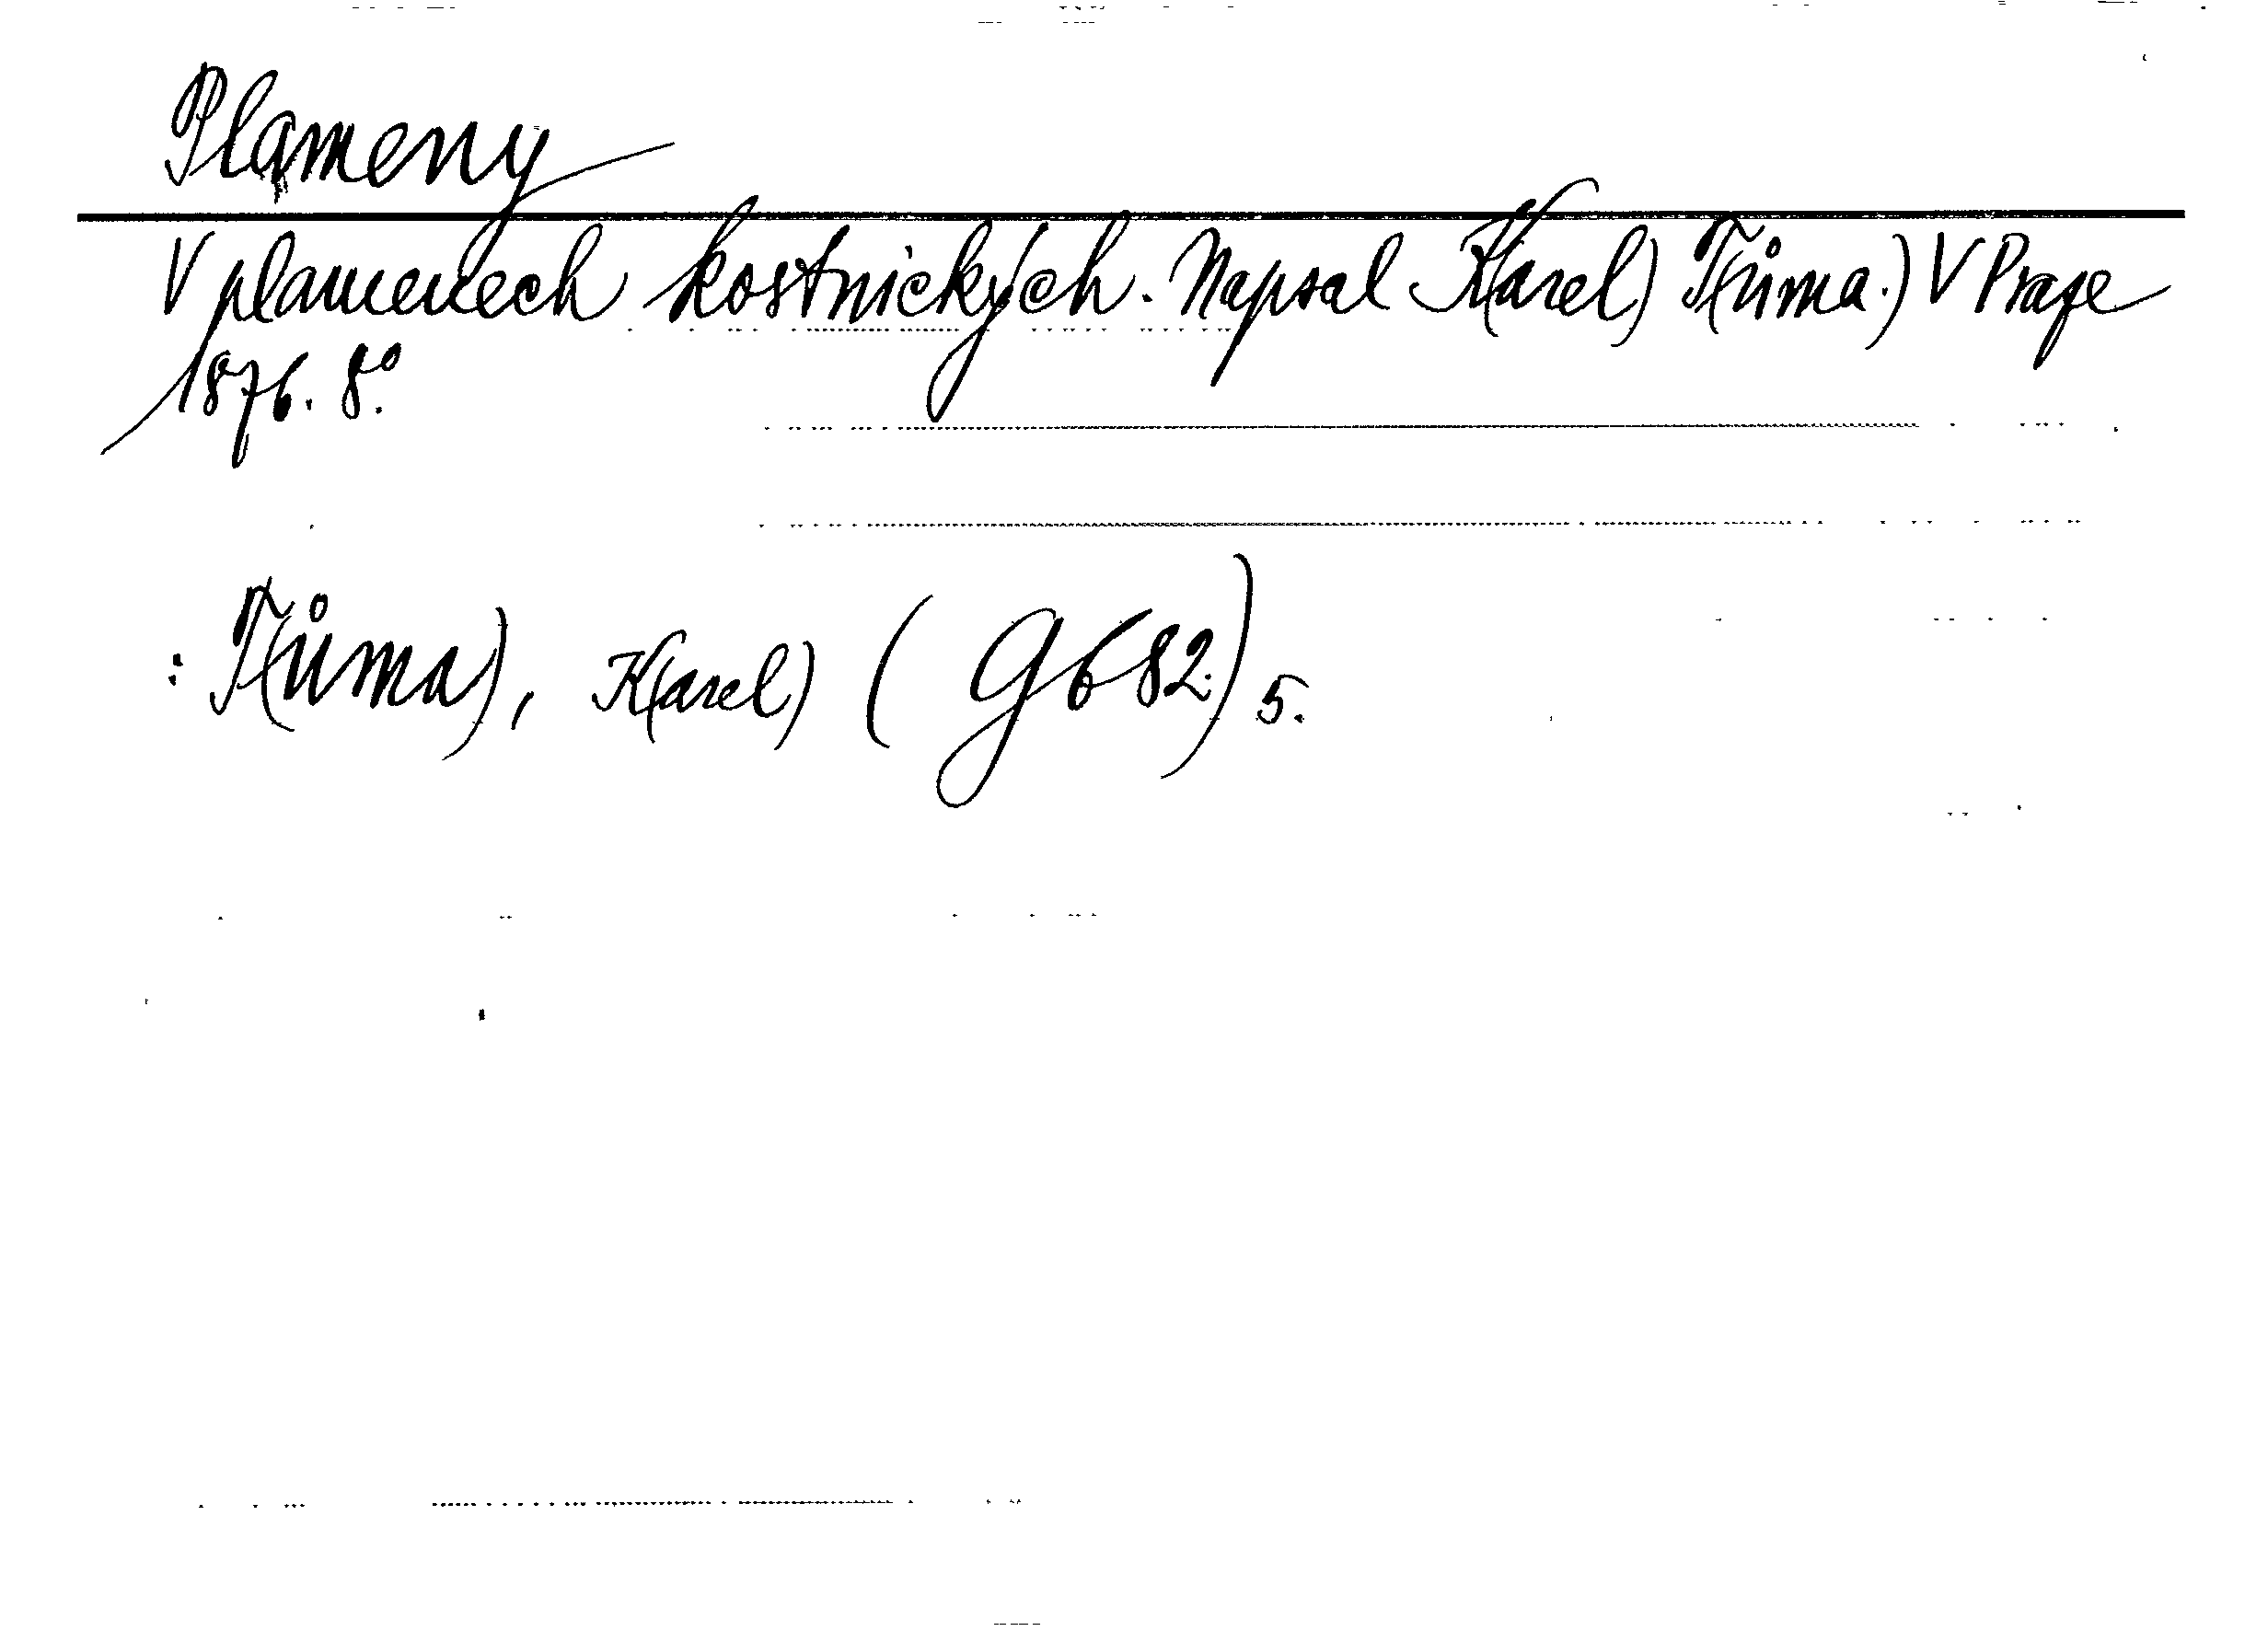 Plameny
V plamenech kostnických. Napsal K(arel) T(ůma.) V Praze
1876. 8°.
: T(ůma), K(arel) (g b 82.) 5.